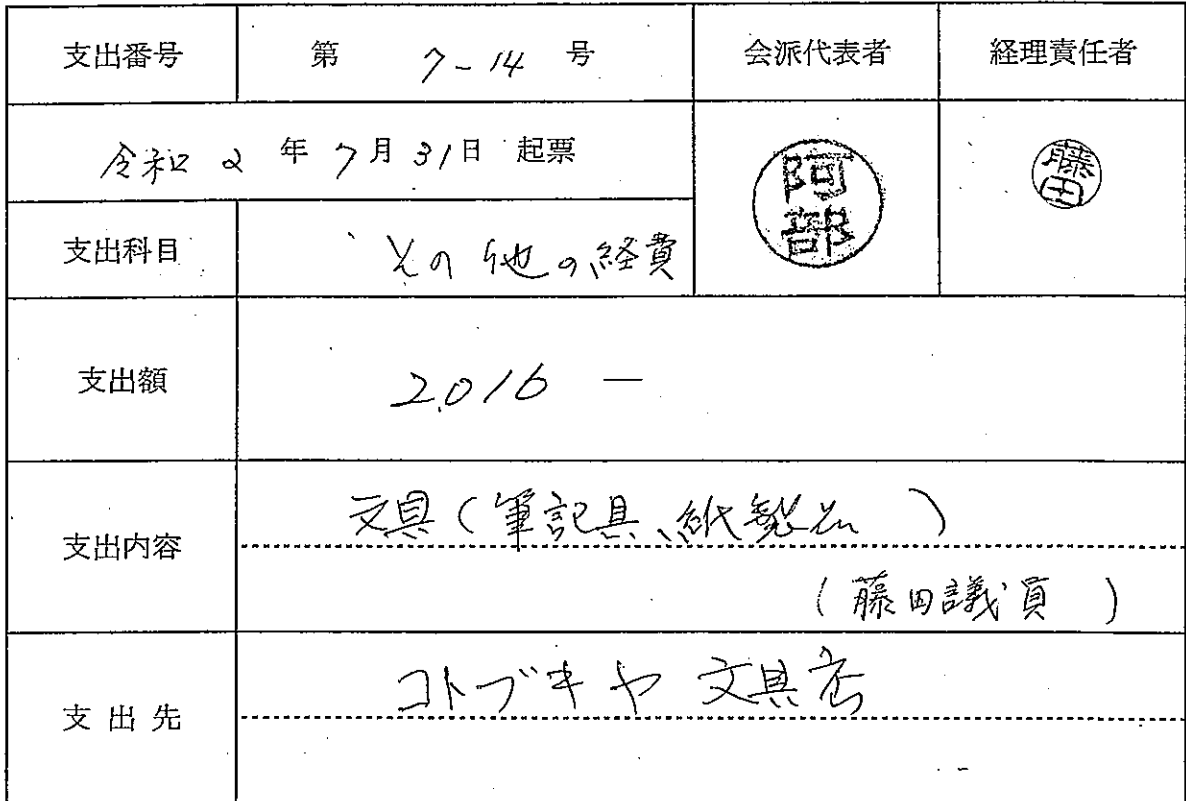 支出番号 第 7-14 号 会派代表者 経理責任者
令和 2 年 7月 31日 起票
阿部
藤田
支出科目 その他の経費
支出額 2,016 —
支出内容 文具(筆記具、紙製品)
(藤田議員)
支出先 コトブキヤ 文具店